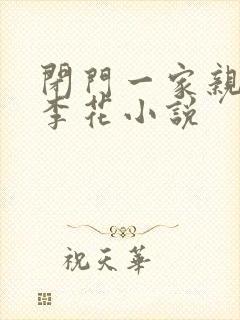 閉門一家親
李花小説
祝天華